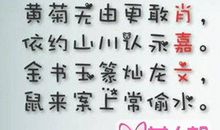 黄菊无由更敢肖，
依约山川认永嘉。
金书玉篆灿龙文，
鼠来案上常偷水。